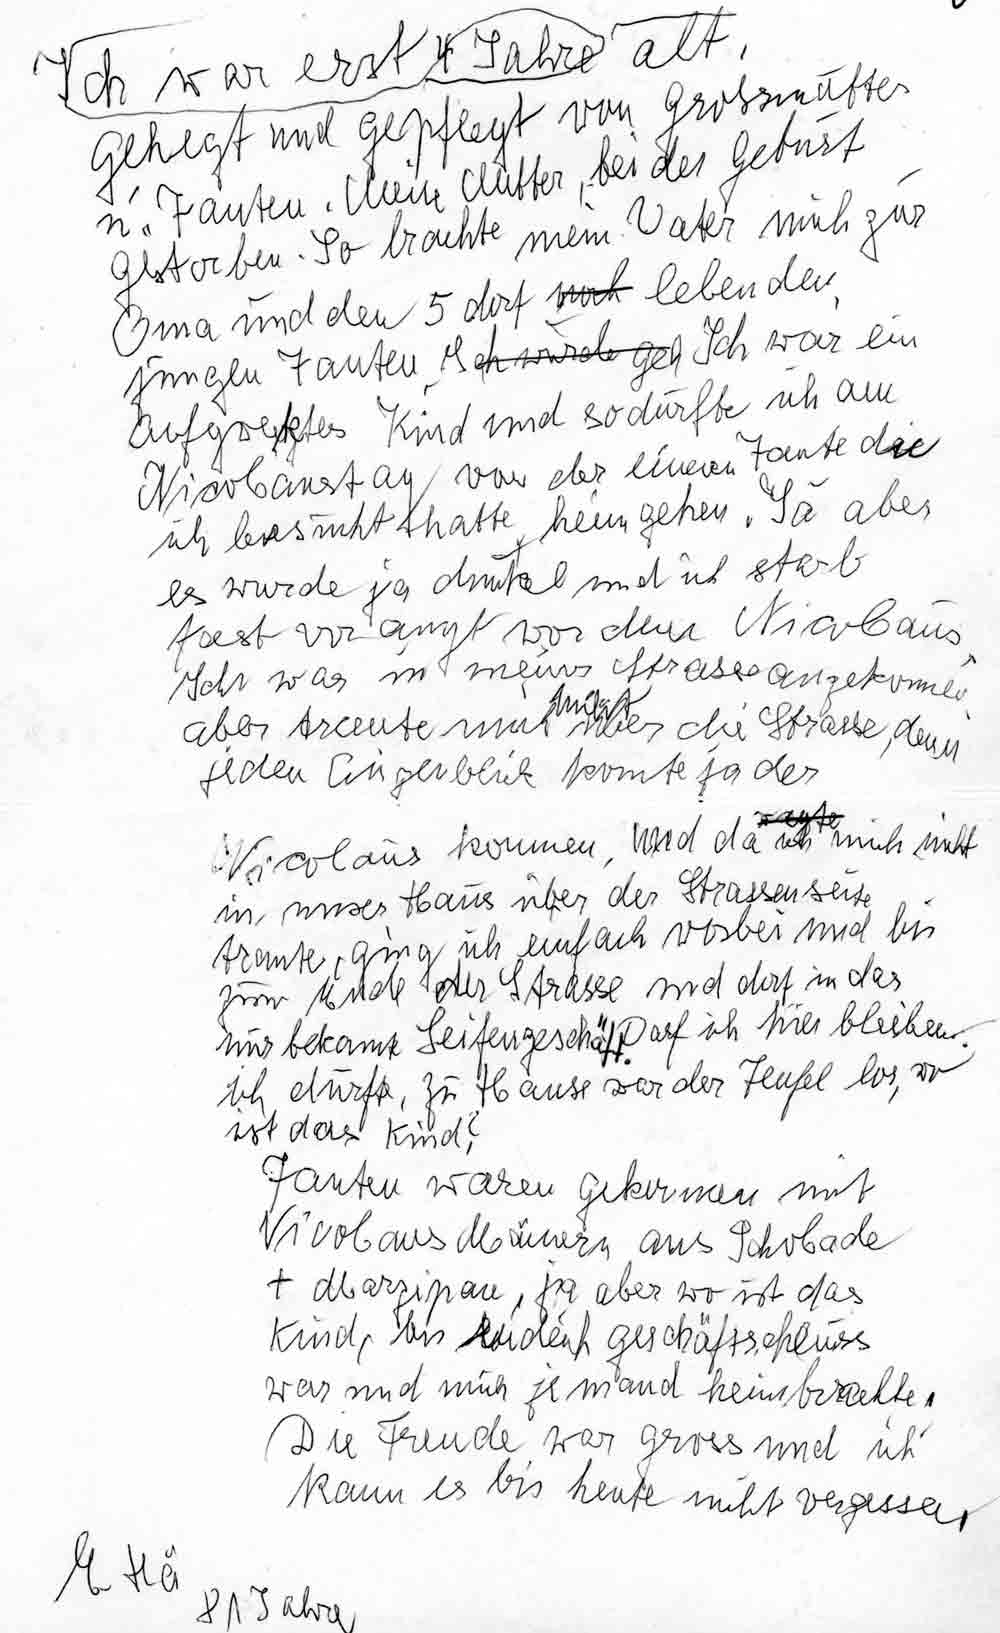 Ich war erst 4 Jahre alt,
gehegt und gepflegt von Grossmutter
u. Tanten. Meine Mutter, bei der Geburt
gestorben. So brachte mein Vater mich zur
Oma und den 5 dort noch lebenden
jungen Tanten, Ich wurde geh Ich war ein
aufgewektes Kind und so durfte ich am
Nicolaustag von der einen Tante die
ich besucht hatte, heim gehen. Ja aber
es wurde ja dunkel und ich starb
fast vor angst vor dem Nicolaus,
Ich war in meiner Strasse angekommen,
aber traute mich nicht über die Strasse, denn
jeden Augenblick konnte ja der
Nicolaus kommen, und da ich wagte mich nicht
in unser Haus über der Strassenseite
traute, ging ich einfach vorbei und bis
zum Ende der Strasse und dort in das
mir bekannte Seifengeschäft. Darf ich hier bleiben.
ich durfte, zu Hause war der Teufel los, wo
ist das Kind?
Tanten waren gekommen mit
Nicolaus Männern aus Schokolade
+ Marzipan, ja aber wo ist das
Kind, bis endlich geschäftschluss
war und mich jemand heimbrachte.
Die Freude war gross und ich
kann es bis heute nicht vergessen,
E. Hä
81 Jahre